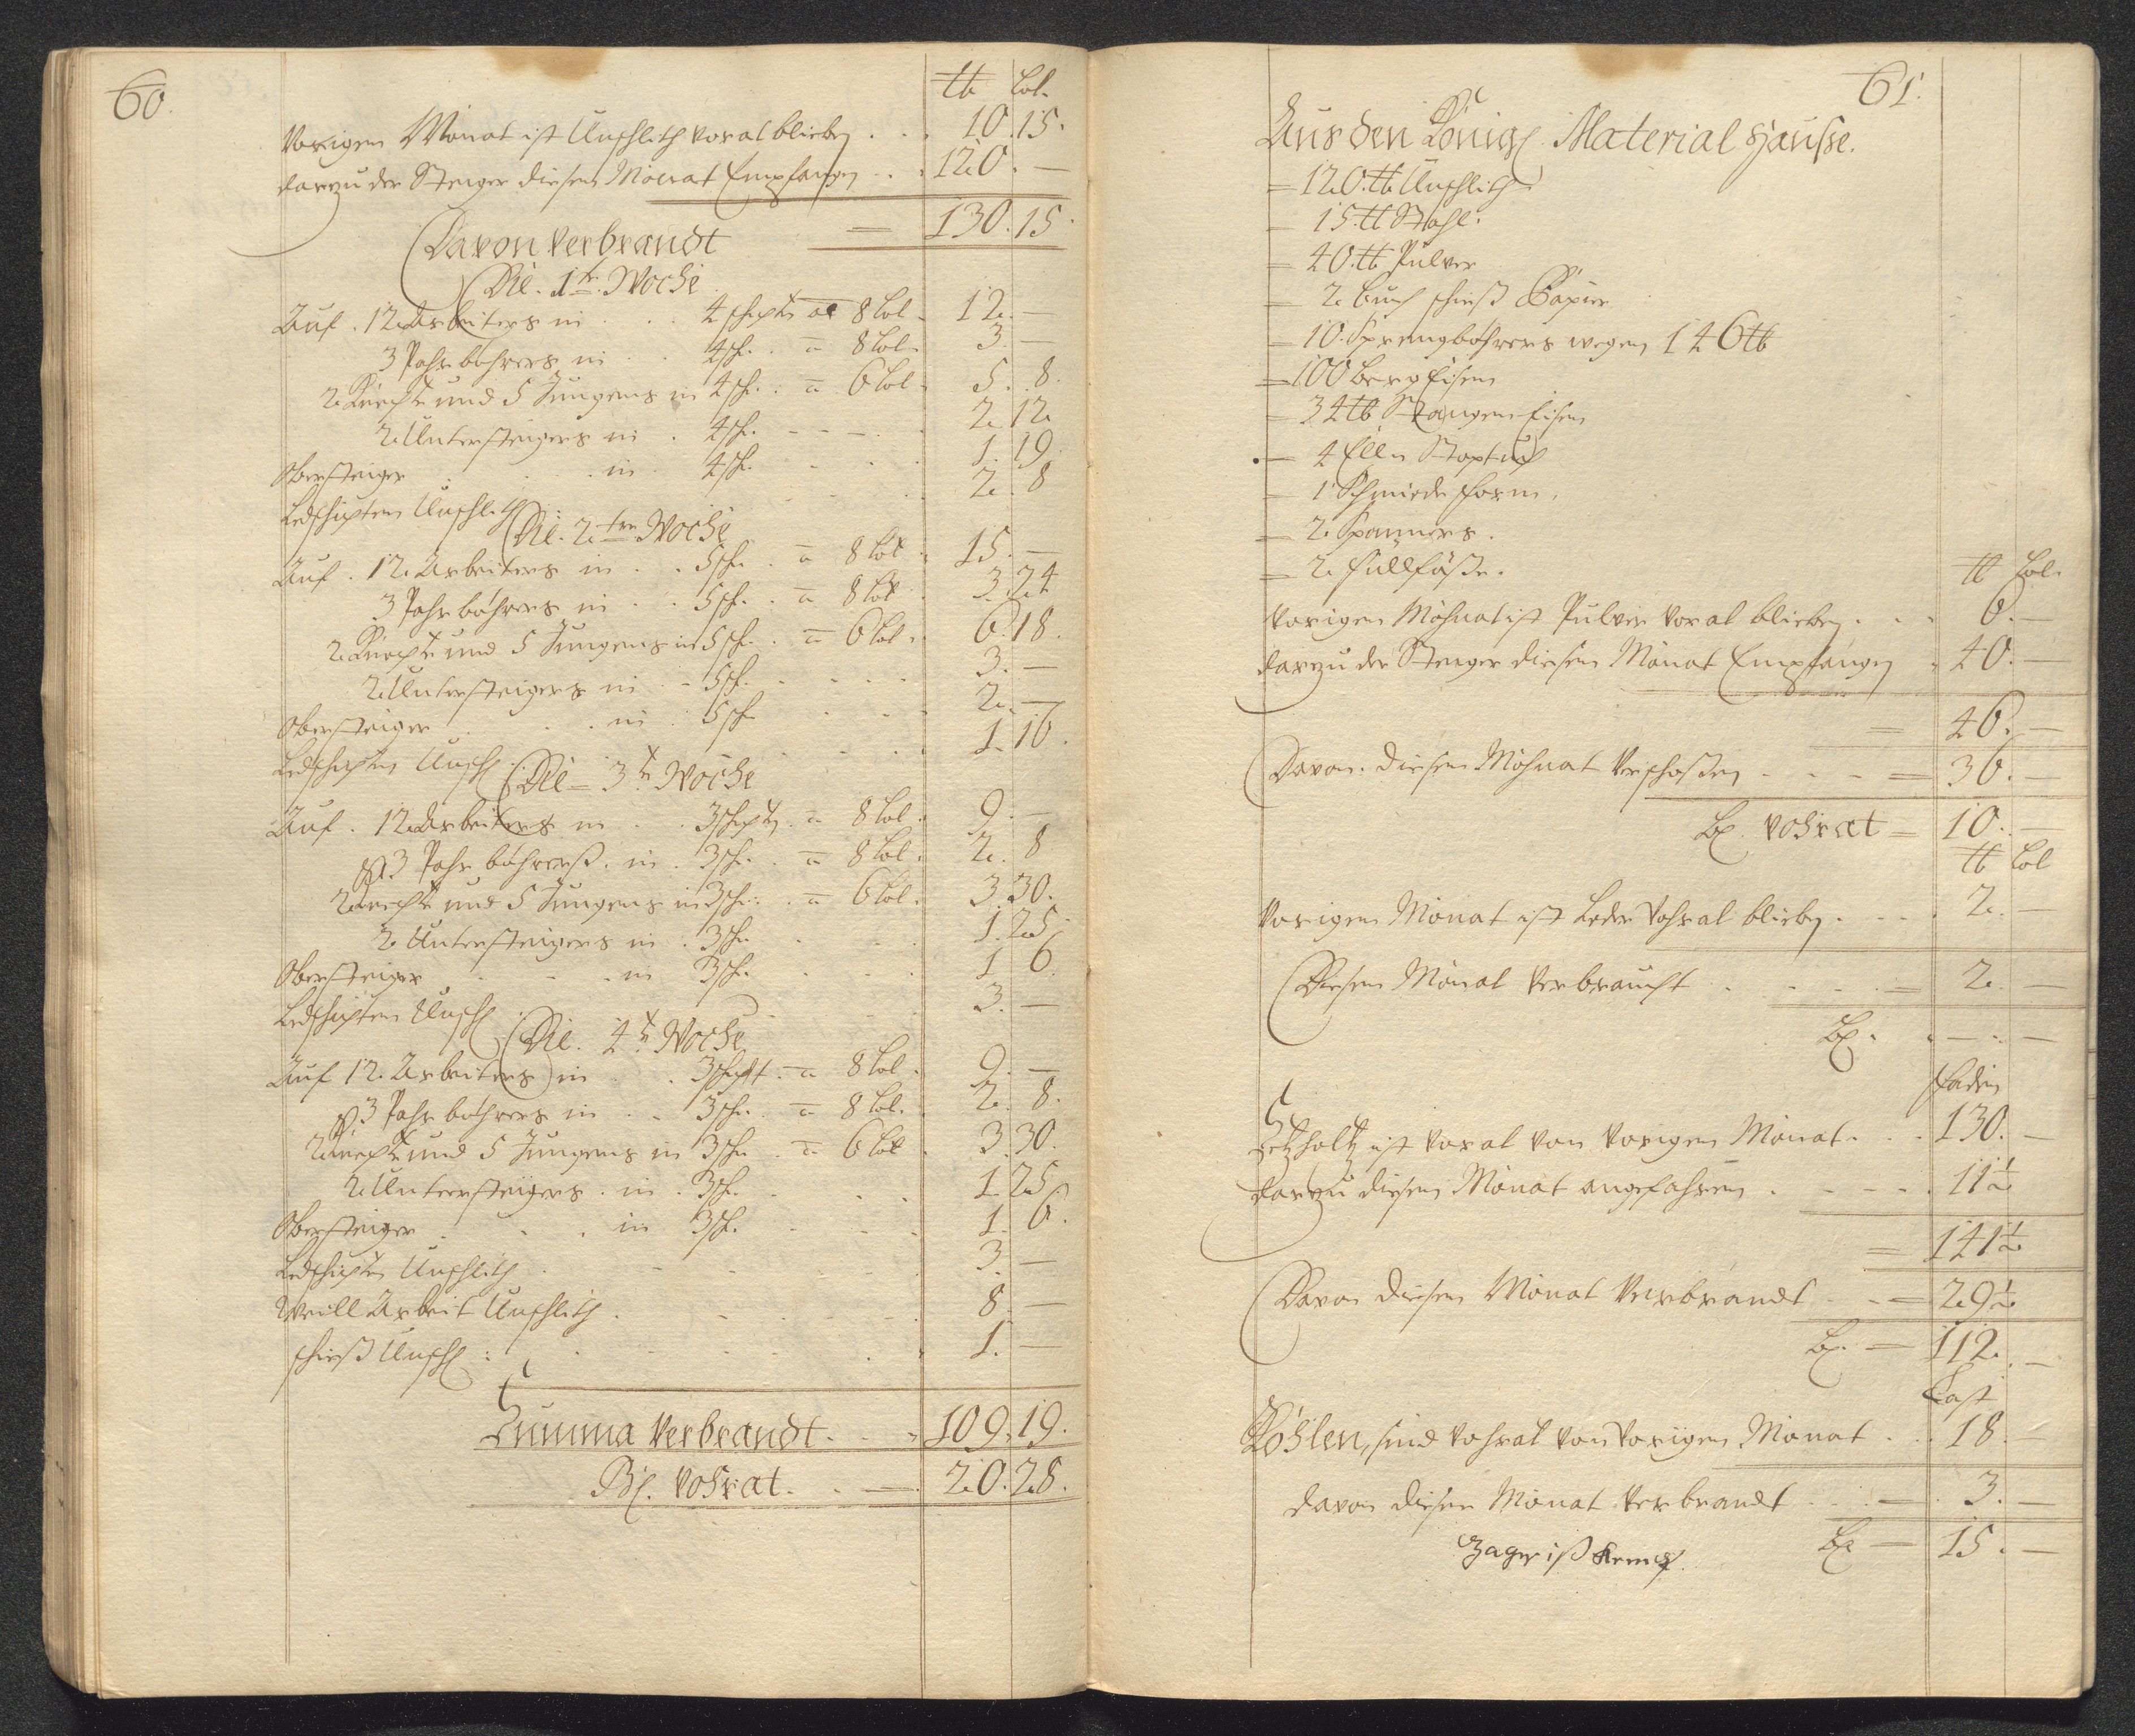 60.
℔ Lot.
Vorigen Monat ist Unschlith Vorat blieben . . . 10. 15.
darzu der Steiger diesen Monat Empfangen . . 120. —
= 130. 15.
Davon Verbrandt
Die. 1te. Woche
Auf. 12. Arbeiters in . . . 4 schichte a 8 Lot. 12. —
3 Pahr bohrers in . . 4 sch. . a 8 Lot. 3. —
2 Knechte und 5 Jungens in 4 sch. . a 6 Lot. 5. 8.
2 Untersteigers in . 4 sch. - - - . 2. 12
Obersteiger . . . in . 4 sch. - . . 1. 19.
Ledschichten Unschlith . . . 2. 8
Die. 2ten Woche
Auf. 12. Arbeiters in . . 5 sch. . a 8 Lot. 15. —
3 Pahr bohrers in . . 5 sch. . a 8 Lot 3. 24
2 Knechte und 5 Jungens in 5 sch. . a 6 Lot. 6. 18.
2 Untersteigers in . - 5 sch. - - - - 3. —
Obersteiger . . . in . 5 sch - - - 2. —
Ledschichten Unschl . . . 1. 16.
Die - 3te Woche
Auf. 12. Arbeiters in . . 3 schichte . a 8 Lot. 9. —
3 Pahr bohrerß. in . 3 sch. . a 8 Lot. 2. 8
2 Knechte und 5 Jungens in 3 sch. . a 6 Lot. 3. 30.
2 Untersteigers in . 3 sch. . . . 1. 25.
Obersteiger . - . in 3 sch. . . . 1. 6.
Ledschichten Unschl . . . 3. —
Die. 4te Woche
Auf 12. Arbeiters in . . 3 schicht . a 8 Lot. 9. —
3 Pahr bohrers in . . 3 sch. . a 8 Lot. 2. 8.
2 Knechte und 5 Jungens in 3 sch . a 6 Lot 3. 30.
2 Untersteigers . in . 3 sch. . . . 1. 25
Obersteiger . . . in 3 sch. . . . 1. 6.
Ledschichten Unschlith . . . 3. —
Weill Arbeit Unschlith . . . 8. —
schieß Unschl : . . . 1. —
Summa Verbrandt . . . 109. 19.
Bl. Vohrat . . — 20. 28.
61.
Aus den Königl. Material Hausse.
= 120. ℔ Unschlith
= 15. ℔ Stahl.
= 40. ℔ Pulver
= 2 buch schieß Papier
= 10. Sprengbohrers wegen 146 ℔
= 100 berg Eisen
= 34 ℔ Stangen Eisen
= 4 Elln Stoptuch
= 1 Schmiede form.
= 2. Spanners.
= 2. füllfäße.
℔ Lot.
Vorigen Mohnat ist Pulver Vorat blieben . . . 6. —
darzu der Steiger diesen Monat Empfangen . 40. —
= 46. —
Davon diesen Mohnat Verschoßen - - - = 36. —
Bl. Vohrat = 10. —
℔ Lot
Vorigen Monat ist Leder Vohrat blieben . . . 2. —
Diesen Monat Verbraucht . - - - = 2. —
Bl. . — . —
Faden
Setzholtz ist Vorat von Vorigen Monat . . . 130. —
darzu diesen Monat angefahren . - - - . 11½
= 141½
Davon diesen Monat Verbrandt - - = 29½
Bl. = 112. —
Last
Kohlen, sind Vohrat von Vorigen Monat . . 18. —
davon diesen Monat Verbrandt . . . = 3. —
Bl — 15. —